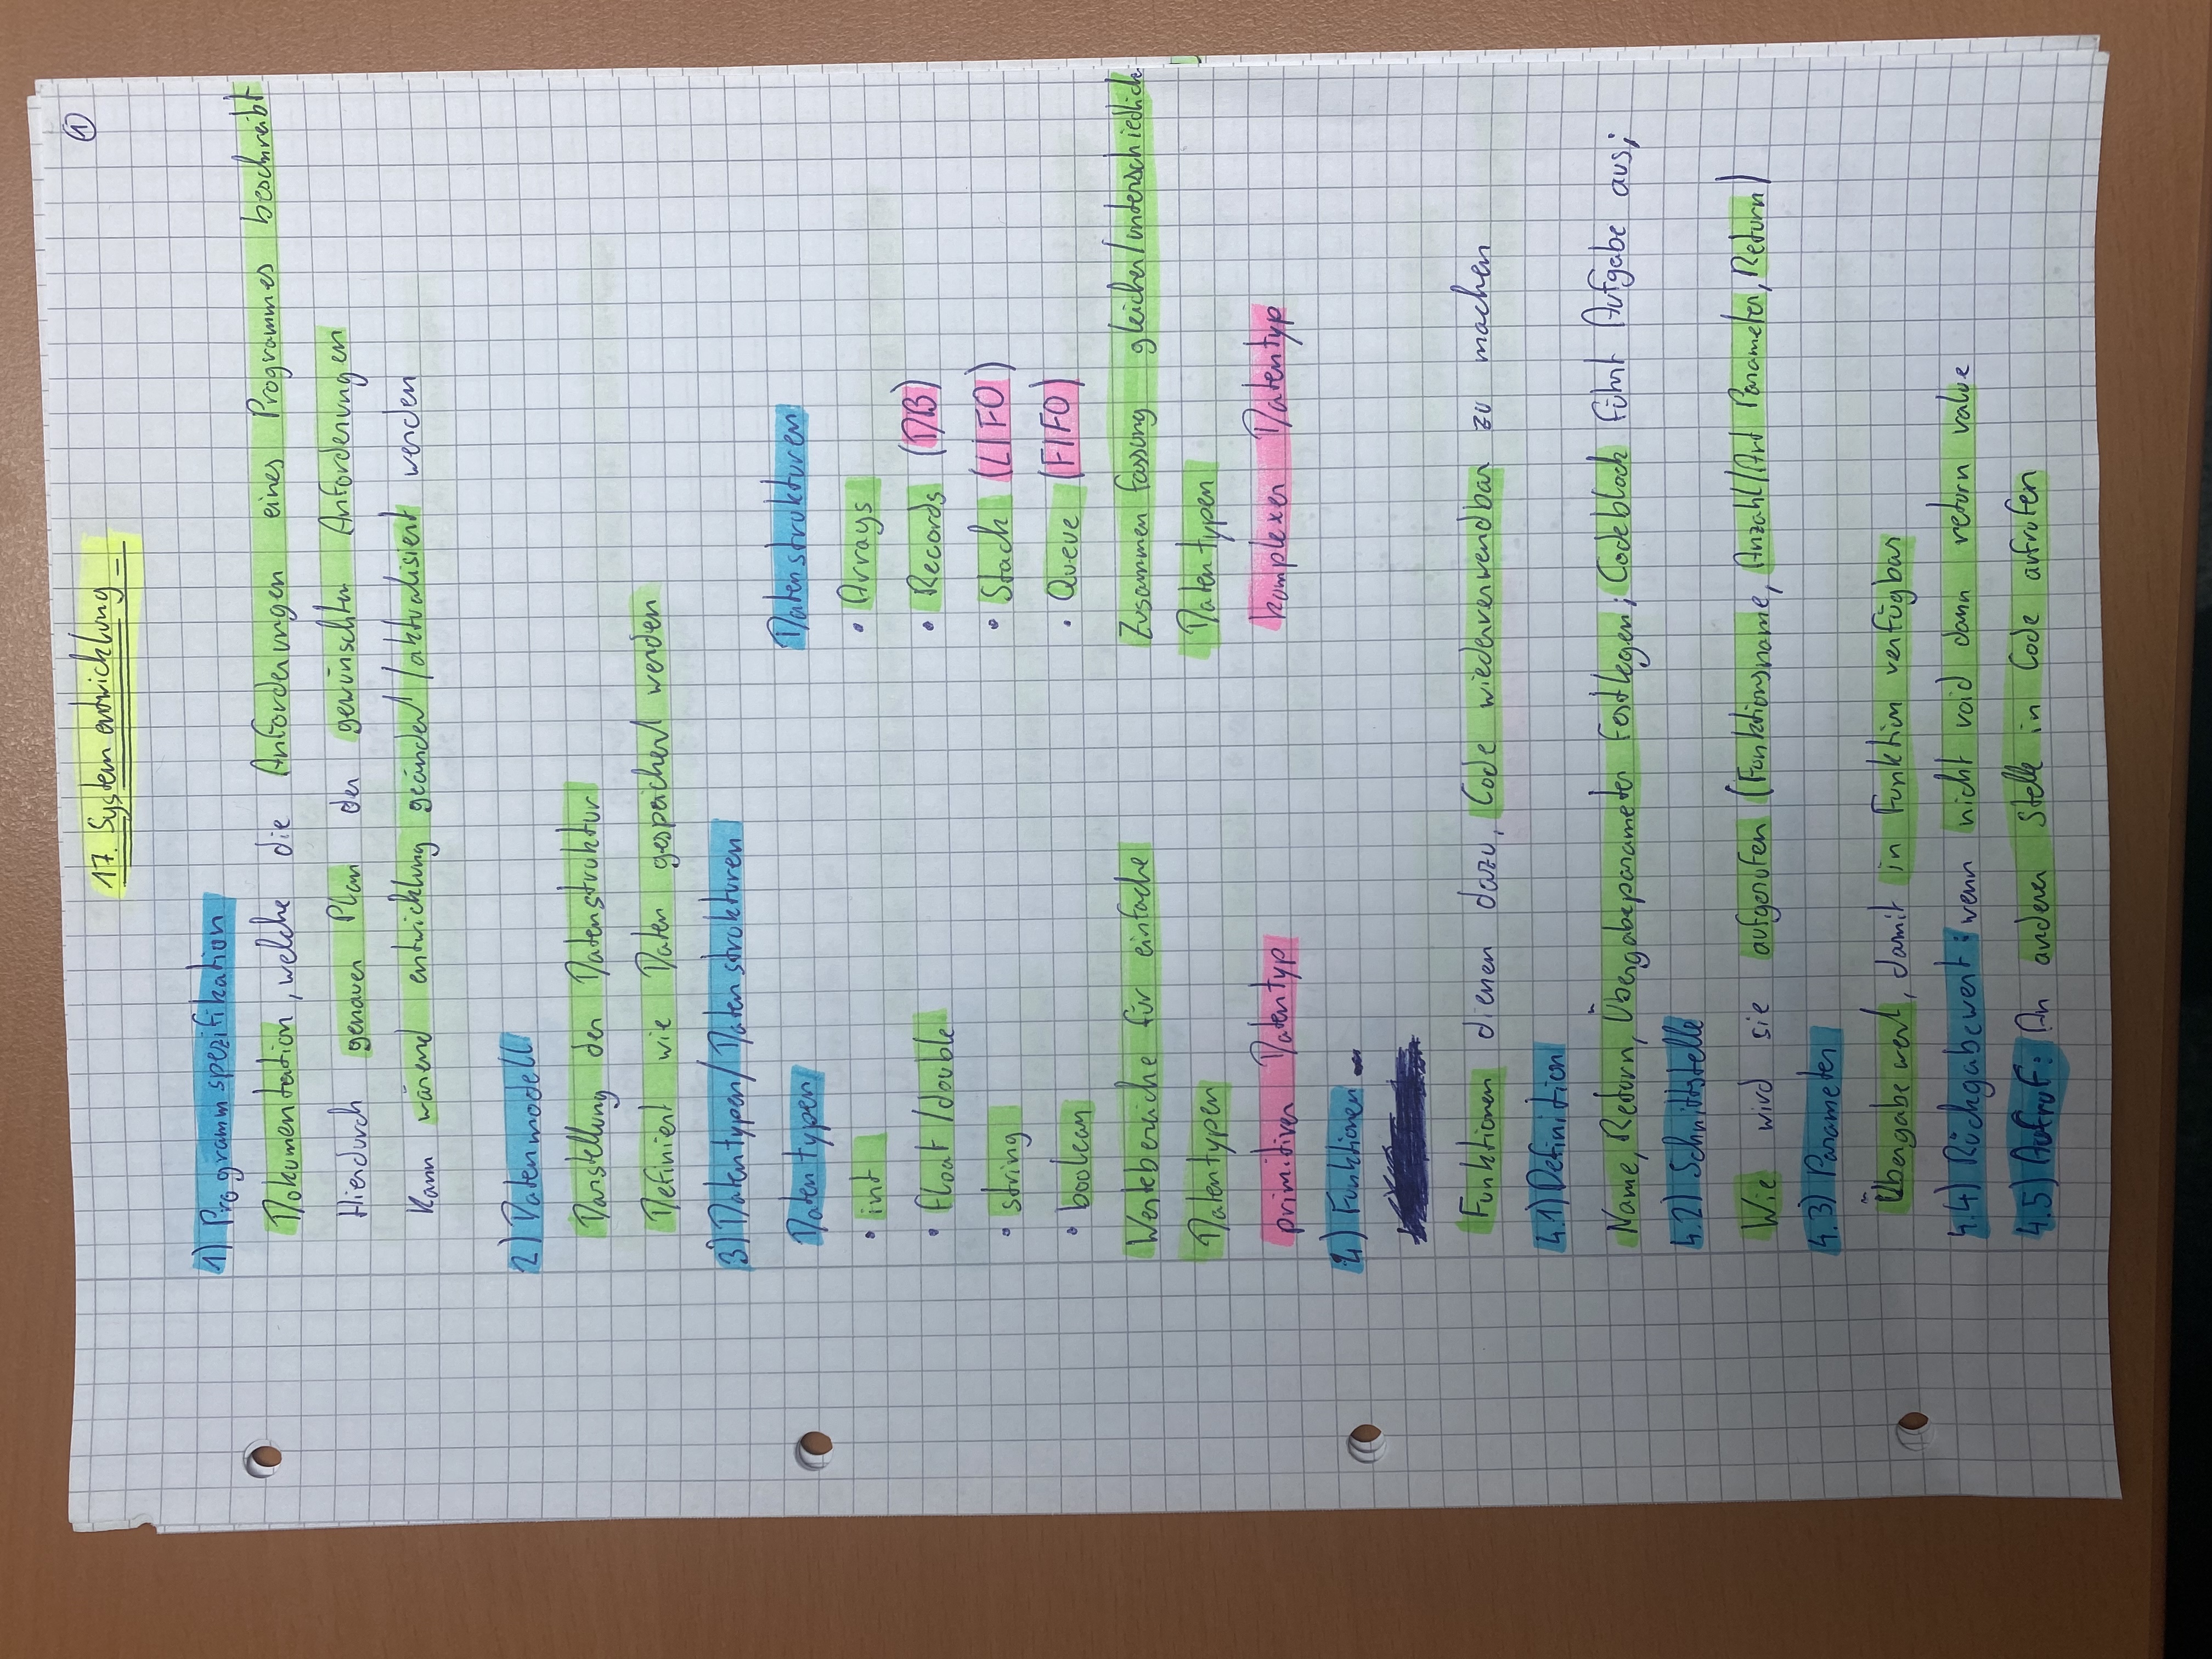 ①
17. Systementwicklung
1) Programmspezifikation
Dokumentation, welche die Anforderungen eines Programmes beschreibt
Hierdurch genauer Plan der gewünschten Anforderungen
Kann wärend entwicklung geändert/aktualisiert werden
2) Datenmodell
Darstellung der Datenstruktur
Definiert wie Daten gespeichert werden
3) Datentypen/Datenstrukturen
Datentypen
• int
• float/double
• string
• boolean
Wertebereiche für einfache
Datentypen
primitiver Datentyp
Datenstrukturen
• Arrays
• Records (DB)
• Stack (LIFO)
• Queue (FIFO)
Zusammenfassung gleicher/unterschiedliche
Datentypen
komplexer Datentyp
4) Funktionen
Funktionen dienen dazu, Code wiederverwendbar zu machen
4.1) Definition
Name, Return, Übergabeparameter festlegen; Codeblock führt Aufgabe aus;
4.2) Schnittstelle
Wie wird sie aufgerufen (Funktionsname, Anzahl/Art Parameter, Return)
4.3) Parameter
Übergabewert, damit in Funktion verfügbar
4.4) Rückgabewert: wenn nicht void dann return value
4.5) Aufruf: An anderer Stelle in Code aufrufen